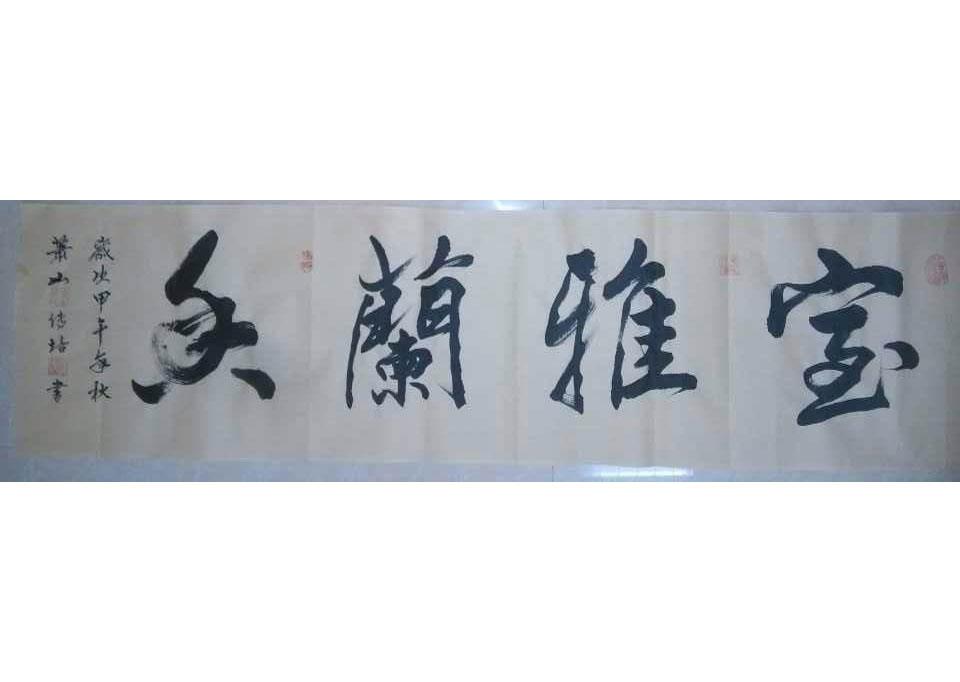 室雅蘭香
歲次甲午年秋
蕭山傳培書